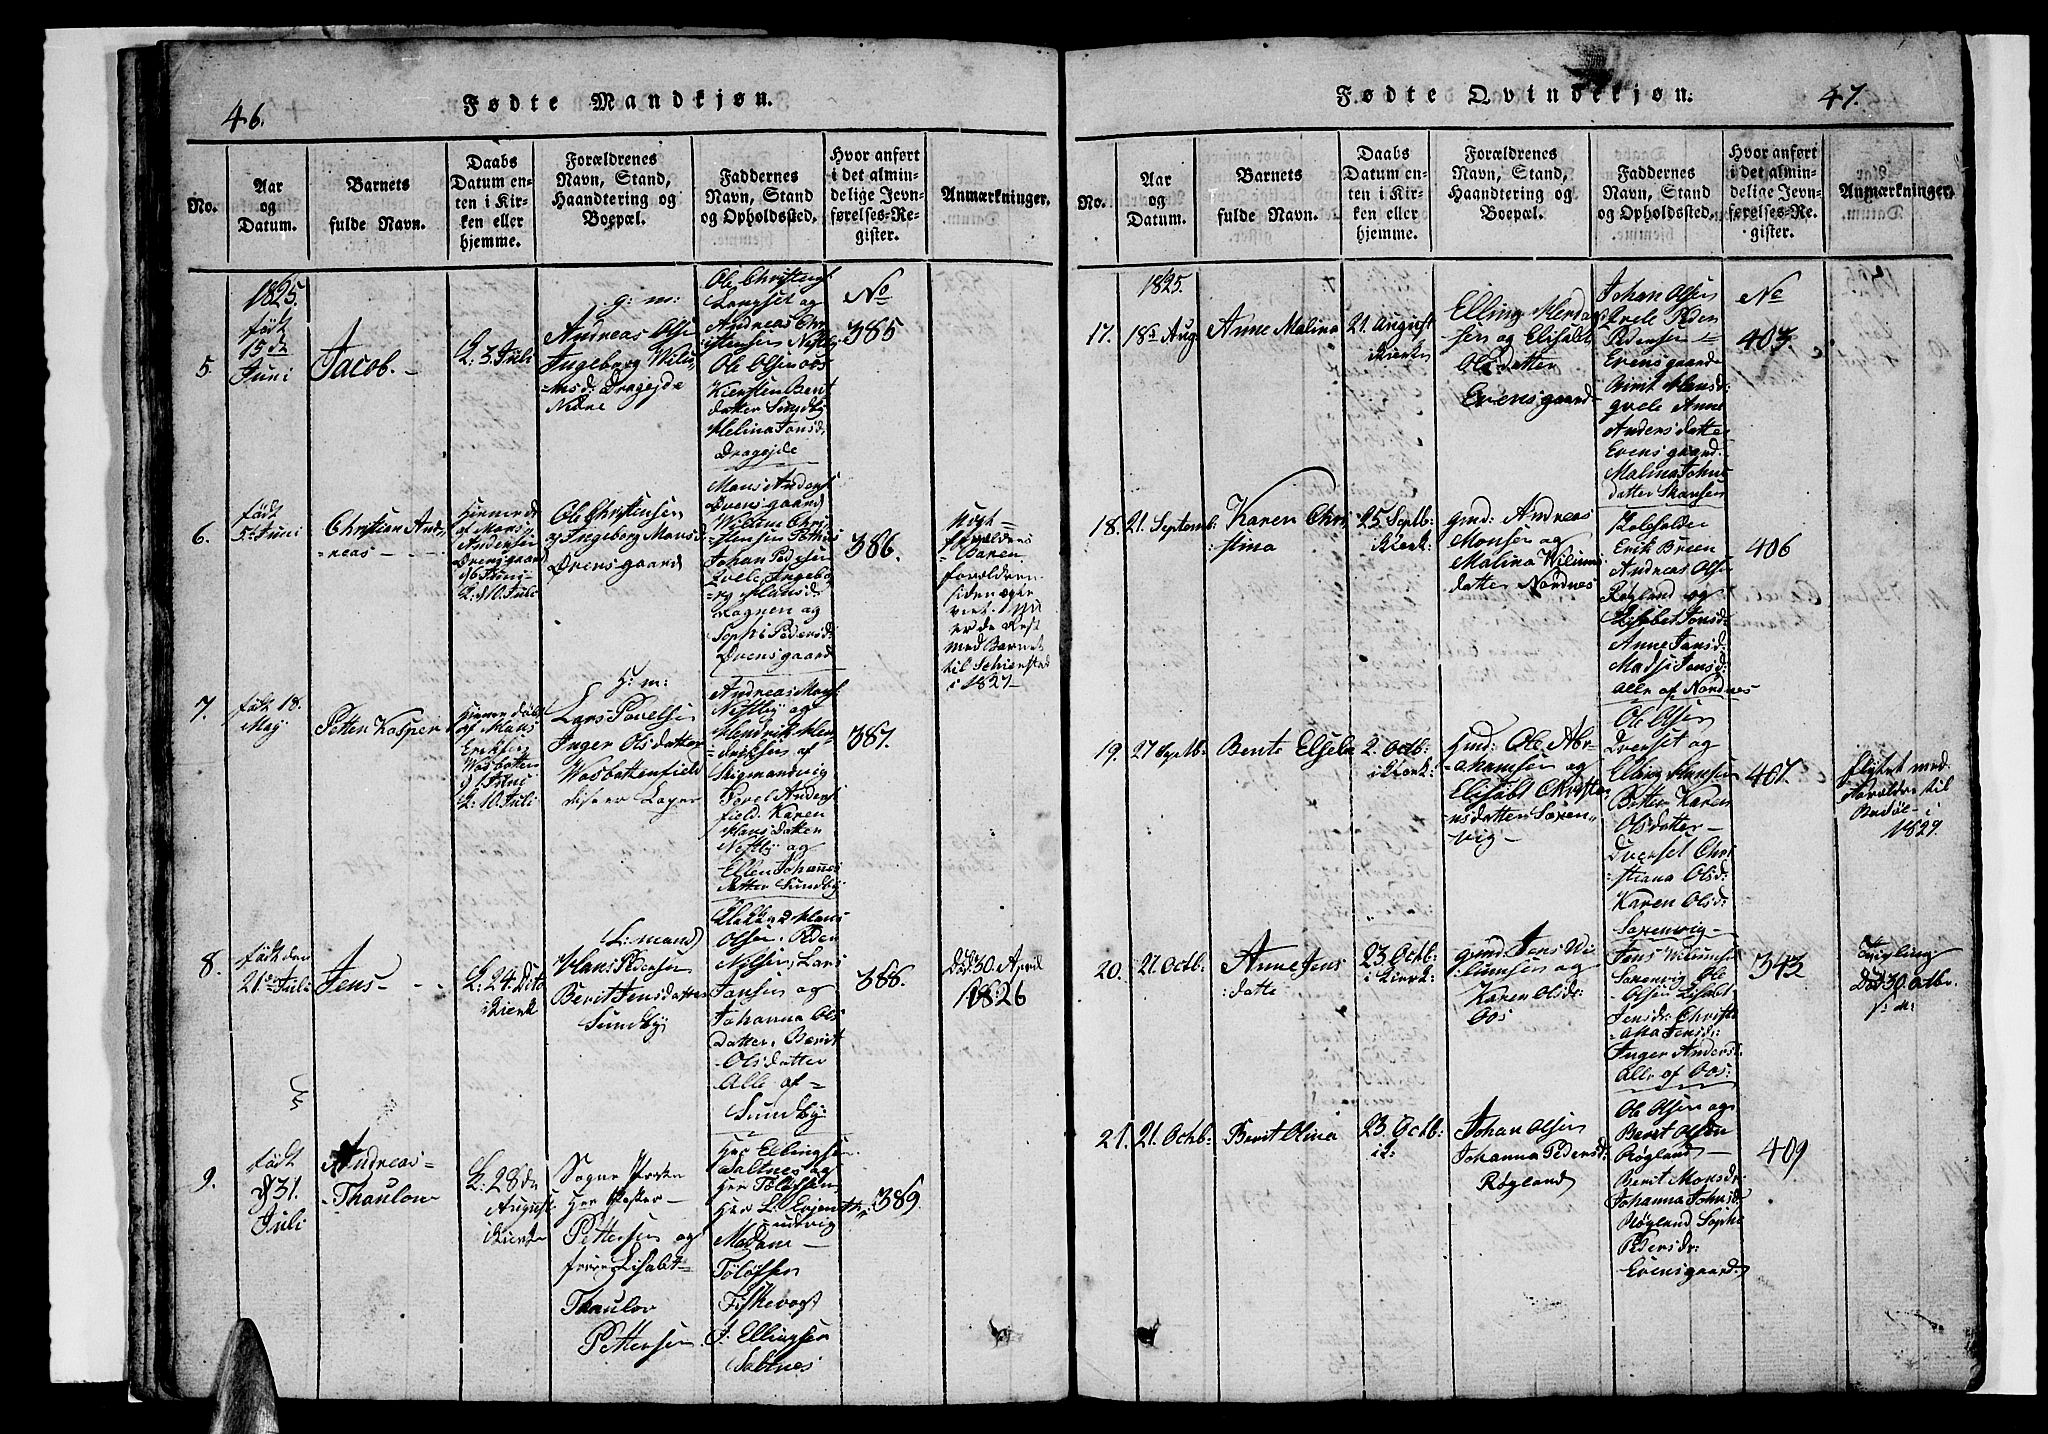 46.
Fødte Mandkjøn.
No.
Aar
og
Datum.
Barnets
fulde Navn.
Daabs
Datum en-
ten i Kir-
ken eller
hjemme.
Forældrenes
Navn, Stand,
Haandtering og
Boepæl.
Faddernes
Navn, Stand
og Opholdssted.
Hvor anført
i det almin-
delige Jevn-
førelses-Re-
gister.
Anmærkninger.
5
1825.
født
15de
Juni
Jacob.
d: 3 Juli
g: m:
Andreas Olse
Ingeborg Wilu
msd: Drageide
Nedre
Ole Christens
Langset og
Andreas Chr
istensen Nestby
Ole Olsen Oos
Kiersten Bent
datter Sundby
Melina Jonsd:
Drageide
No
385
6.
født
5te Juni
Christian And,
=reas
Hiemmedt
af Mons
Andersen
Evensgaard
d: 10 Juli
Ole Christensen
og Ingeborg Monsd:
Evensgaard
Mons Anders
Evensgaard
Willum Chri
stensen
Johan Pedersen
Qvele Ingebo
rg Hansd:
Sophi Pedersd:
Evensgaard
386.
med Barnet
til Schierstad
i 1827
7.
født 18.
May
Petter Kasper
Hiemmedøbt
af Hans
Eriksen
Wasbotten
d: 10 Juli
H: m:
Lars Povelsen
Inger Olsdatter
Wasbottenfield
Andreas Mons
Nestby og
Hendrik Hen
driksen af
Povel Anders
field. Karen
Hansdatter
Nestby og
Ellen Johannes
datter Sundby
387.
8.
født den
21de Juli
Jens
d: 24 Dito
i Kierk
L: mand
Hans Pedersen
Berit Jensdatter
Sundby
Hans
Olsen. Peder
Nilsen, Lars
Jansen og
Johanna Ols
datter. Berit
Olsdatter
Alle af
Sundby:
388.
død 30. April
1826
9.
født
d 31.
Juli
Andreas
Thaulow
d: 28de
August
i Kierke
Sogne Præsten
Her Pastor
Pettersen og
frue Lisabet
Thaulov
Pettersen
Her Ellingsen
Saltnes og
Her Toløfsen
Madam
Toløfsen
Fiskevogt
J. Ellingsen
Saltnes
389.
Fødte Qvindekjøn.
47.
No.
Aar
og
Datum.
Barnets
fulde Navn.
Daabs
Datum en-
ten i Kir-
ken eller
hjemme.
Forældrenes
Navn, Stand,
Haandtering og
Boepæl.
Faddernes
Navn, Stand
og Opholdssted.
Hvor anført
i det almin-
delige Jevn-
førelses-Re-
gister.
Anmærkninger.
1825.
17.
18de Aug.
Anne Malina
21. August
i Kierke
Elling Menda
sen og Elisabet
Olsdatter
Evensgaard
Johan Olsen
Qvele Peder
Pedersen
Evensgaard
Birrit Hansd:
Qvele Anne
Andersdatter
Evensgaard.
Malina Johns
datter Skansen
No
403.
18.
21. Septemb:
Karen Chri
stina
25 Septb:
i Kierk:
gmd: Andreas
Monsen og
Malina Willums
datter Nordnes
Erik Breen
Andreas Olsen
Røgland og
Elisabet Jonsd:
Anne Jansd:
Alle af Nordnes
406
19.
27 Septb.
Bente Elsela
2. Octb:
i Kierk:
Hmd: Ole Abr
ahamsen og
Elisabt Christe
nsdatter Saxen
vig
Ole Olsen
Everset og
Elling Hansen
Karen
Olsdatter
Everset Chri
stiana Olsd:
Karen Olsd:
Saxenvig
407.
flyttet med
forældre til
Badøl i
1829.
20.
21. Octb.
Anne Jens
datte
23. Octb.
i Kierk:
gmd. Jens Wi
lumsen og
Karen Olsdr:
Oos
Jens Wilumsen
Saxenvig Ole
Olsen Lisabt
Jensdr: Christi
ana Jensdr:
Inger Andersd:
alle af Oos:
343
Tvilling
Død 30. Octb.
s: a:
21.
21. Octb:
Berit Olina
23. Octb:
i K:
Johan Olsen
Johanna Pedersd:
Røgland
Ole Olsen og
Berit Olsen
Røgland
Berit Monsdr:
Johanna Johnsd:
Røgland Sophi
Pedersdr:
Evensgaard
409